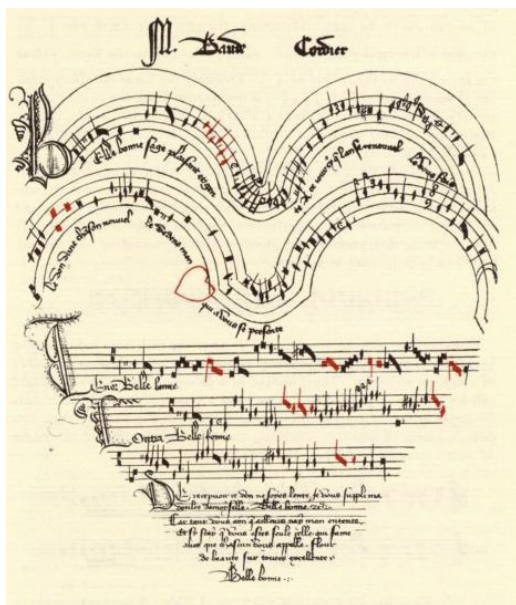 M. Baude Cordier
Belle bonne sage plaisant et gen
te A ce jour cy que lan se renouvel
Vous fais
le don dune chanson nouvel
le dedens mon
qui a vous se presente
Tenor Belle bonne
Contra Belle bonne
De recepvoir ce don ne soyes lente, Je vous suppli ma
doulce damoyselle. Belle bonne
Car tant vous aim qaillours nay mon entente
et sy scay q vous estes seule celle qui fame
aves que chascun vous appelle flour
de beaute sur toutes excellente
Belle bonne